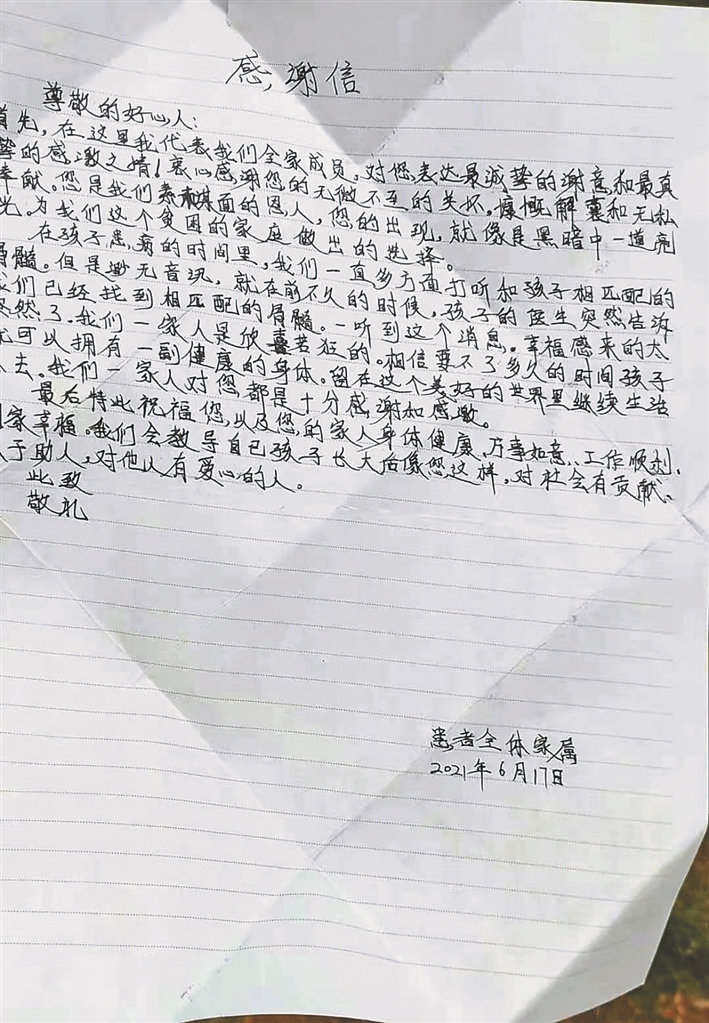 感谢信
尊敬的好心人：
首先，在这里我代表我们全家成员，对您，表达最诚挚的谢意，和最真
挚的感激之情！衷心感谢您的无微不至的关怀。慷慨解囊和无私
奉献。您是我们素未谋面的恩人，您的出现，就像是黑暗中一道亮
光。为我们这个贫困的家庭做出的选择。
在孩子患病的时间里，我们一直多方面打听和孩子相匹配的
骨髓。但是渺无音讯，就在前不久的时候，孩子的医生突然告诉
我们已经找到相匹配的骨髓。一听到这个消息。幸福感来的太
突然了。我们一家人是欣喜若狂的。相信要不了多久的时间孩子
就可以拥有一副健康的身体。留在这个美好的世界里继续生活
去。我们一家人对您都是十分感谢和感激。
最后特此祝福您，以及您的家人身体健康，万事如意，工作顺利，
家幸福。我们会教导自己孩子长大后像您这样，对社会有贡献、
于助人，对他人有爱心的人。
此致
敬礼
患者全体家属
2021年6月17日